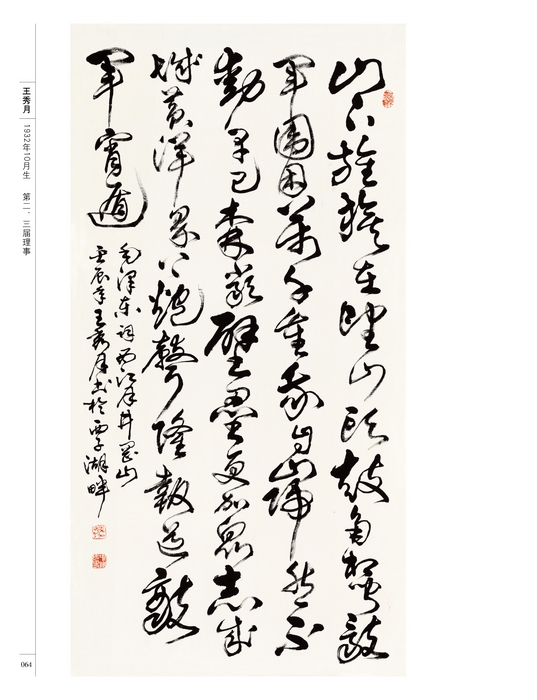 山下旌旗在望山头鼓角相闻敌
军围困万千重我自岿然不
动早已森严壁垒更加众志成
城黄洋界上炮声隆报道敌
军宵遁
毛泽东词西江月井冈山
壬辰年王秀月书于西子湖畔
王秀月
1932年10月生 第二、三届理事
064